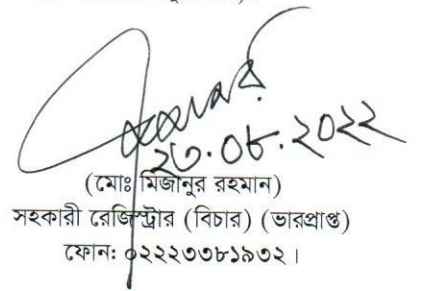 ২৩.০৮.২০২২
(মোঃ মিজানুর রহমান)
সহকারী রেজিস্ট্রার (বিচার) (ভারপ্রাপ্ত)
ফোন: ০২২২৩৩৮১৯৩২।